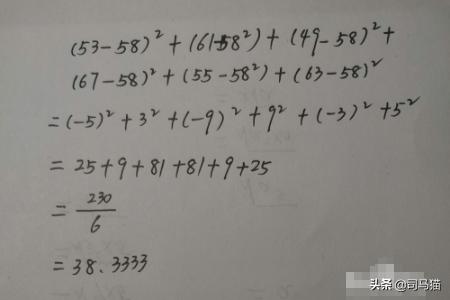 (53-58)² + (61-58²) + (49-58)² +
(67-58)² + (55-58²) + (63-58)²
= (-5)² + 3² + (-9)² + 9² + (-3)² + 5²
= 25+9+81+81+9+25
= 230/6
= 38.3333
头条 @司马猫